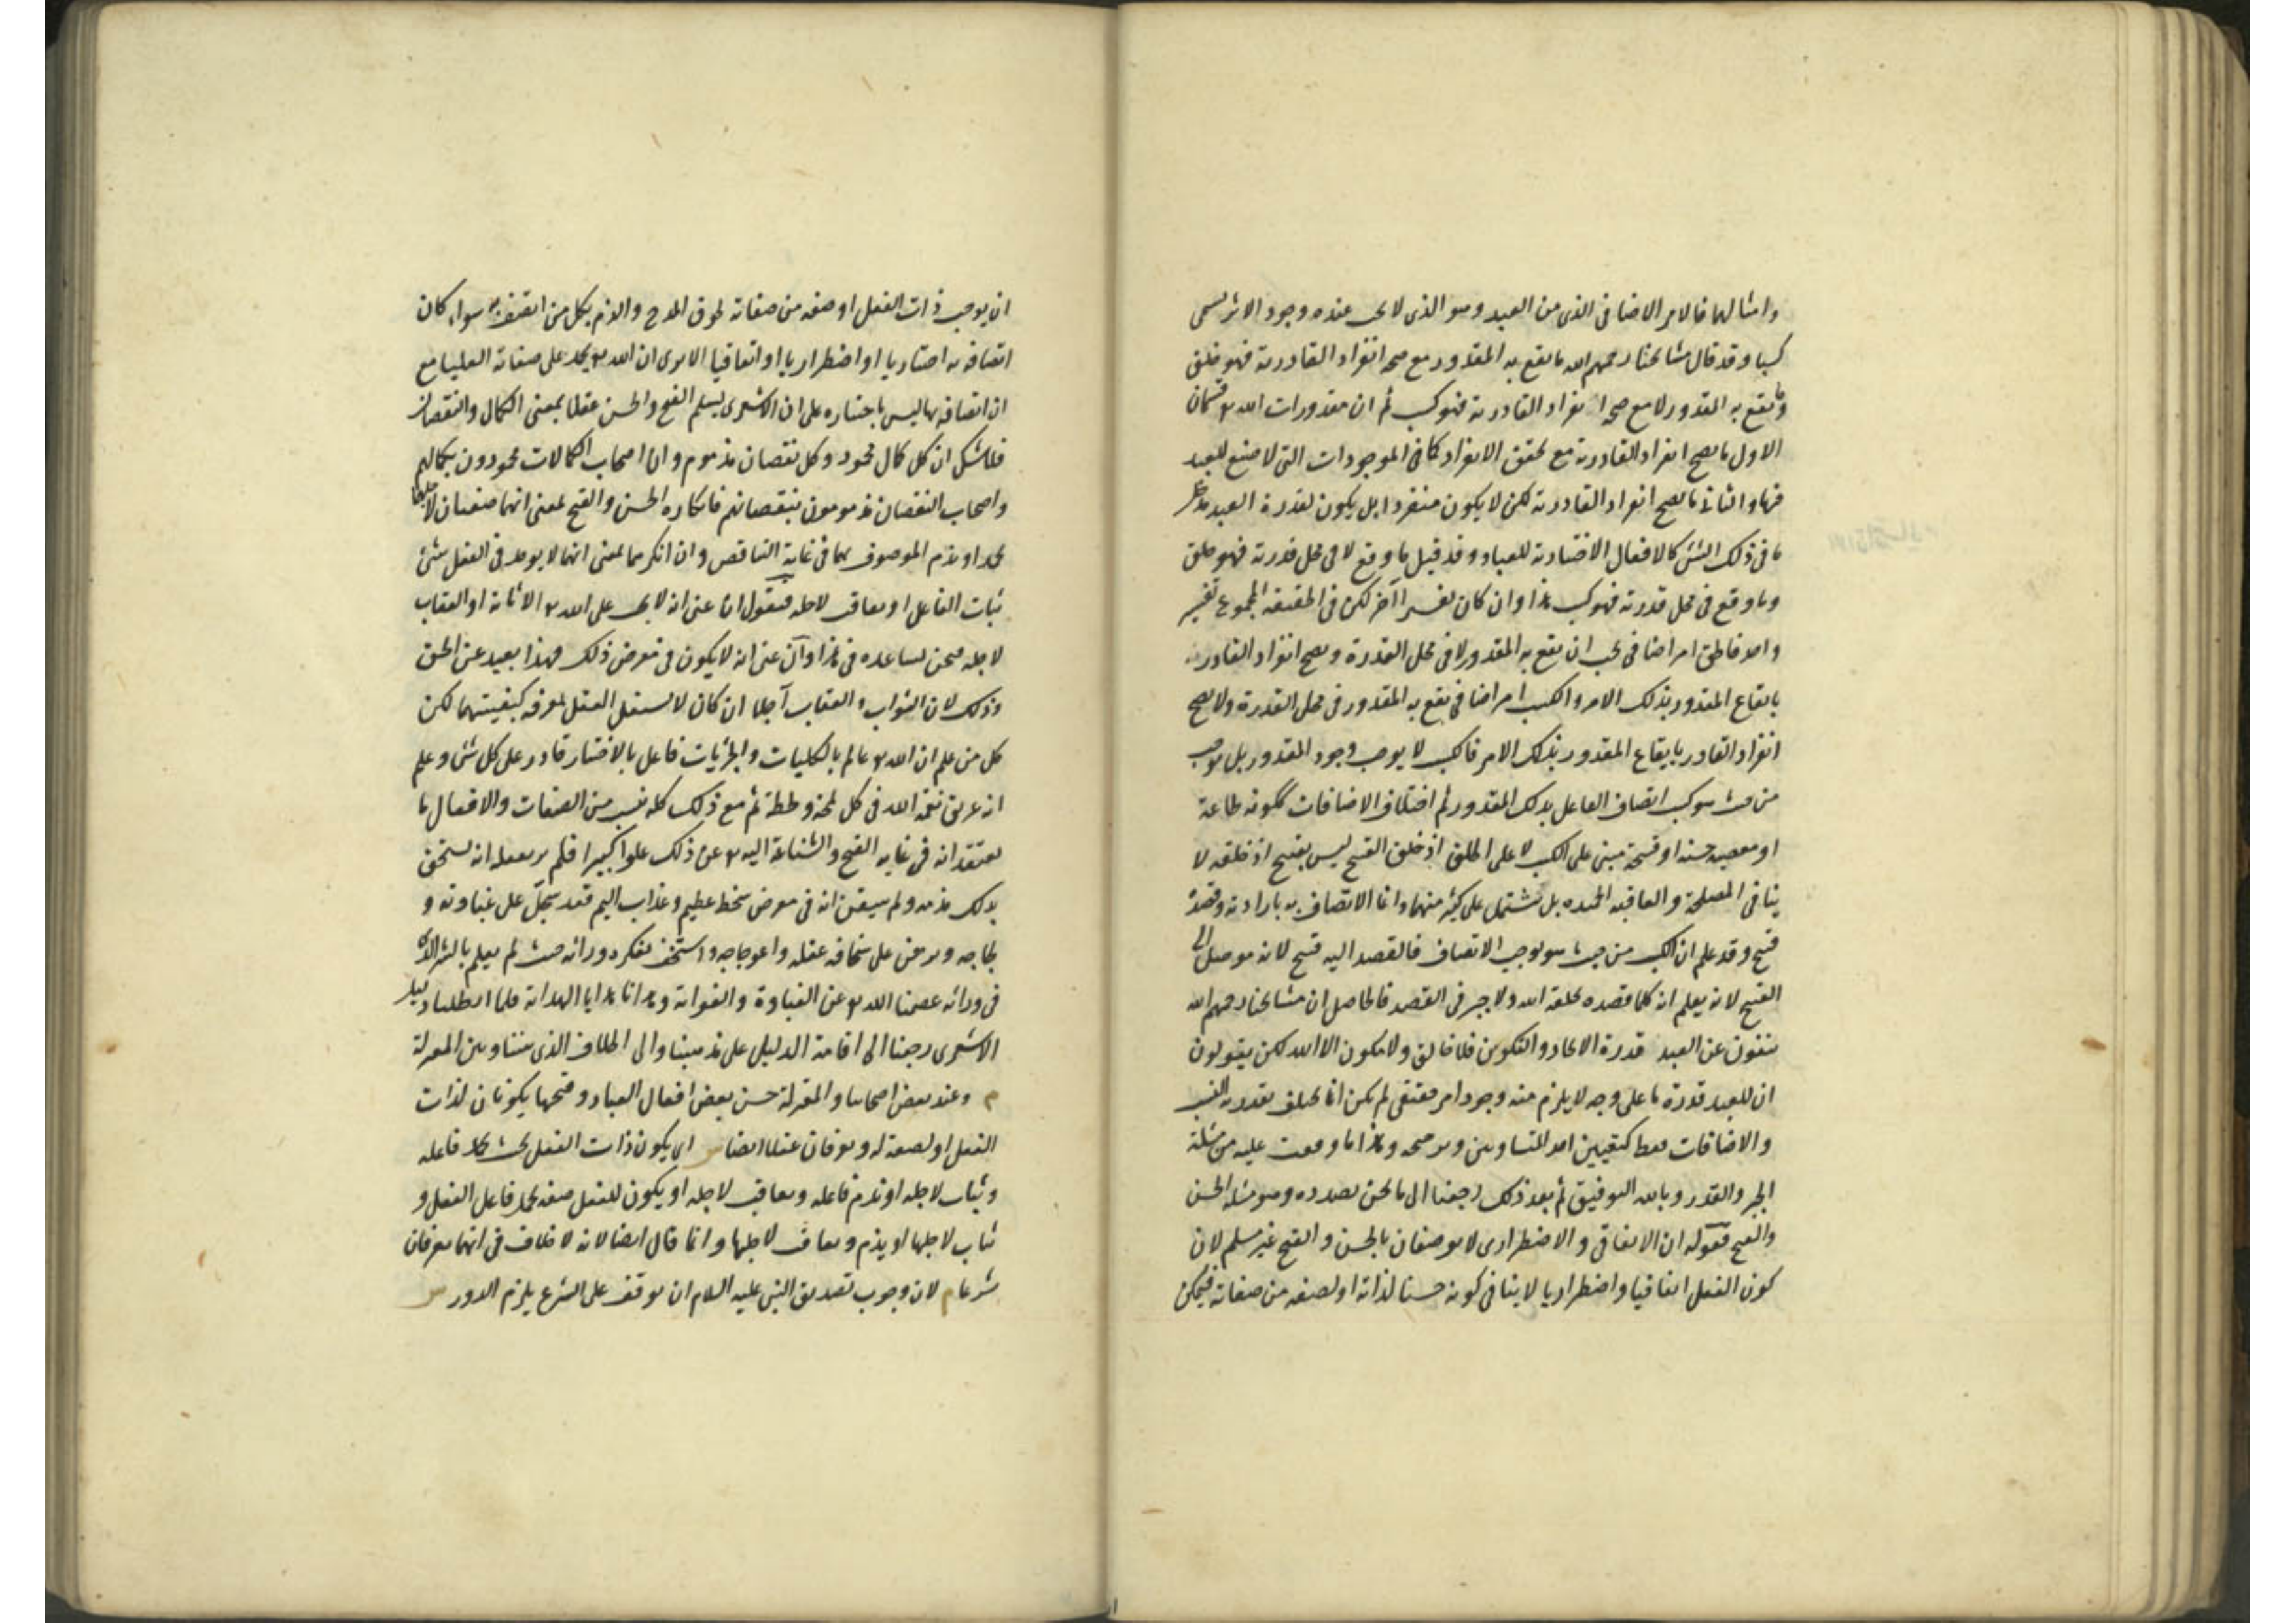 وامثالها فالامر الاضافى الذى من العبد وهو الذى لا يجب عنده وجود الاثر يسمى
كسبا وقد قال مشايخنا رحمهم الله ما يقع به المقدور مع صحة انفراد القادر به فهو خلق
وما يقع به المقدور لا مع صحة انفراد القادر به فهو كسب ثم ان مقدورات الله تع قسمان
الاول ما يصح انفراد القادر به مع تحقق الانفراد كما فى الموجودات التى لا صنع للعبد
فيها والثانى ما يصح انفراد القادر به لكن لا يكون منفردا بل يكون لقدرة العبد مدخل
ما فى ذلك الشئ كالافعال الاختيارية للعباد وقد قيل ما وقع لا فى محل قدرته فهو خلق
وما وقع فى محل قدرته فهو كسب هذا وان كان تفسيرا آخر لكن فى الحقيقة المجموع تفسير
واحد فالخلق امر اضافى يجب ان يقع به المقدور لا فى محل القدرة ويصح انفراد القادر
بايقاع المقدور بذلك الامر والكسب امر اضافى يقع به المقدور فى محل القدرة ولا يصح
انفراد القادر بايقاع المقدور بذلك الامر فالكسب لا يوجب وجود المقدور بل يوجب
من حيث هو كسب اتصاف الفاعل بذلك المقدور ثم اختلاف الاضافات ككونه طاعة
او معصية حسنة او قبيحة مبنى على الكسب لا على الخلق اذ خلق القبيح ليس بقبيح اذ خلقه لا
ينافى المصلحة والعاقبة الحميدة بل يشتمل على كثير منهما وانما الاتصاف به بارادته وقصده
قبيح وقد علم ان الكسب من حيث هو يوجب الاتصاف فالقصد اليه قبيح لانه موصل الى
القبيح لانه يعلم انه كلما قصده يخلقه الله ولا جبر فى القصد فالحاصل ان مشايخنا رحمهم الله
ينفون عن العبد قدرة الايجاد والتكوين فلا خالق ولا مكون الا الله لكن يقولون
ان للعبد قدرة ما على وجه لا يلزم منه وجود امر حقيقى لم يكن انما يختلف بقدرته النسب
والاضافات فقط كتعيين احد المتساويين وترجيحه وهذا ما وقفت عليه من مسئلة
الجبر والقدر وبالله التوفيق ثم بعد ذلك رجعنا الى ما نحن بصدده وهو مسئلة الحسن
والقبح فقوله ان الاتفاقى والاضطرارى لا يوصفان بالحسن والقبح غير مسلم لان
كون الفعل اتفاقيا واضطراريا لا ينافى كونه حسنا لذاته او لصفة من صفاته فيمكن
ان يوجب ذات الفعل او صفة من صفاته لحوق المدح والذم بكل من اتصف به سواء كان
اتصافه به اختياريا او اضطراريا او اتفاقيا الا يرى ان الله تع يحمد على صفاته العليا مع
ان اتصافه بها ليس باختياره على ان الاشعرى يسلم القبح والحسن عقلا بمعنى الكمال والنقصان
فلا شك ان كل كمال محمود وكل نقصان مذموم وان اصحاب الكمالات محمودون بكمالهم
واصحاب النقصان مذمومون بنقصانهم فانكاره الحسن والقبح بمعنى انهما صفتان لاجلهما
يحمد او يذم الموصوف بهما فى غاية التناقض وان انكرهما بمعنى انهما لا يوجد فى الفعل شئ
يثاب الفاعل او يعاقب لاجله فنقول ان عنى انه لا يجب على الله تع الاثابة او العقاب
لاجله فنحن نساعده فى هذا وان عنى انه لا يكون فى معرض ذلك فهذا بعيد عن الحق
وذلك لان الثواب والعقاب آجلا ان كان لا يستقل العقل بمعرفة كيفيتهما لكن
كل من علم ان الله تع عالم بالكليات والجزئيات فاعل بالاختيار قادر على كل شئ وعلم
انه غريق نعمة الله فى كل لمحة ولحظة ثم مع ذلك كله نسب من الصفات والافعال ما
يعتقد انه فى غاية القبح والشناعة اليه تع عن ذلك علوا كبيرا فلم ير بعقله انه يستحق
بذلك مذمة ولم يتيقن انه فى معرض سخط عظيم وعذاب اليم فقد سجل على غباوته و
لجاجه وبرهن على سخافة عقله واعوجاجه واستخف بفكره ورائه حيث لم يعلم بالشر الذى
فى ورائه عصمنا الله تع عن الغباوة والغواية وهدانا هدايا الهداية فلما ابطلنا دليل
الاشعرى رجعنا الى اقامة الدليل على مذهبنا والى الخلاف الذى بيننا وبين المعتزلة
م وعند بعض اصحابنا والمعتزلة حسن بعض افعال العباد وقبحها يكونان لذات
الفعل او لصفة له ويعرفان عقلا ايضا ش اى يكون ذات الفعل بحيث يحمد فاعله
ويثاب لاجله او يذم فاعله ويعاقب لاجله او يكون للفعل صفة يحمد فاعل الفعل و
يثاب لاجلها او يذم ويعاقب لاجلها وانما قال ايضا لانه لا خلاف فى انهما يعرفان
شرعا م لان وجوب تصديق النبى عليه السلام ان توقف على الشرع يلزم الدور ش